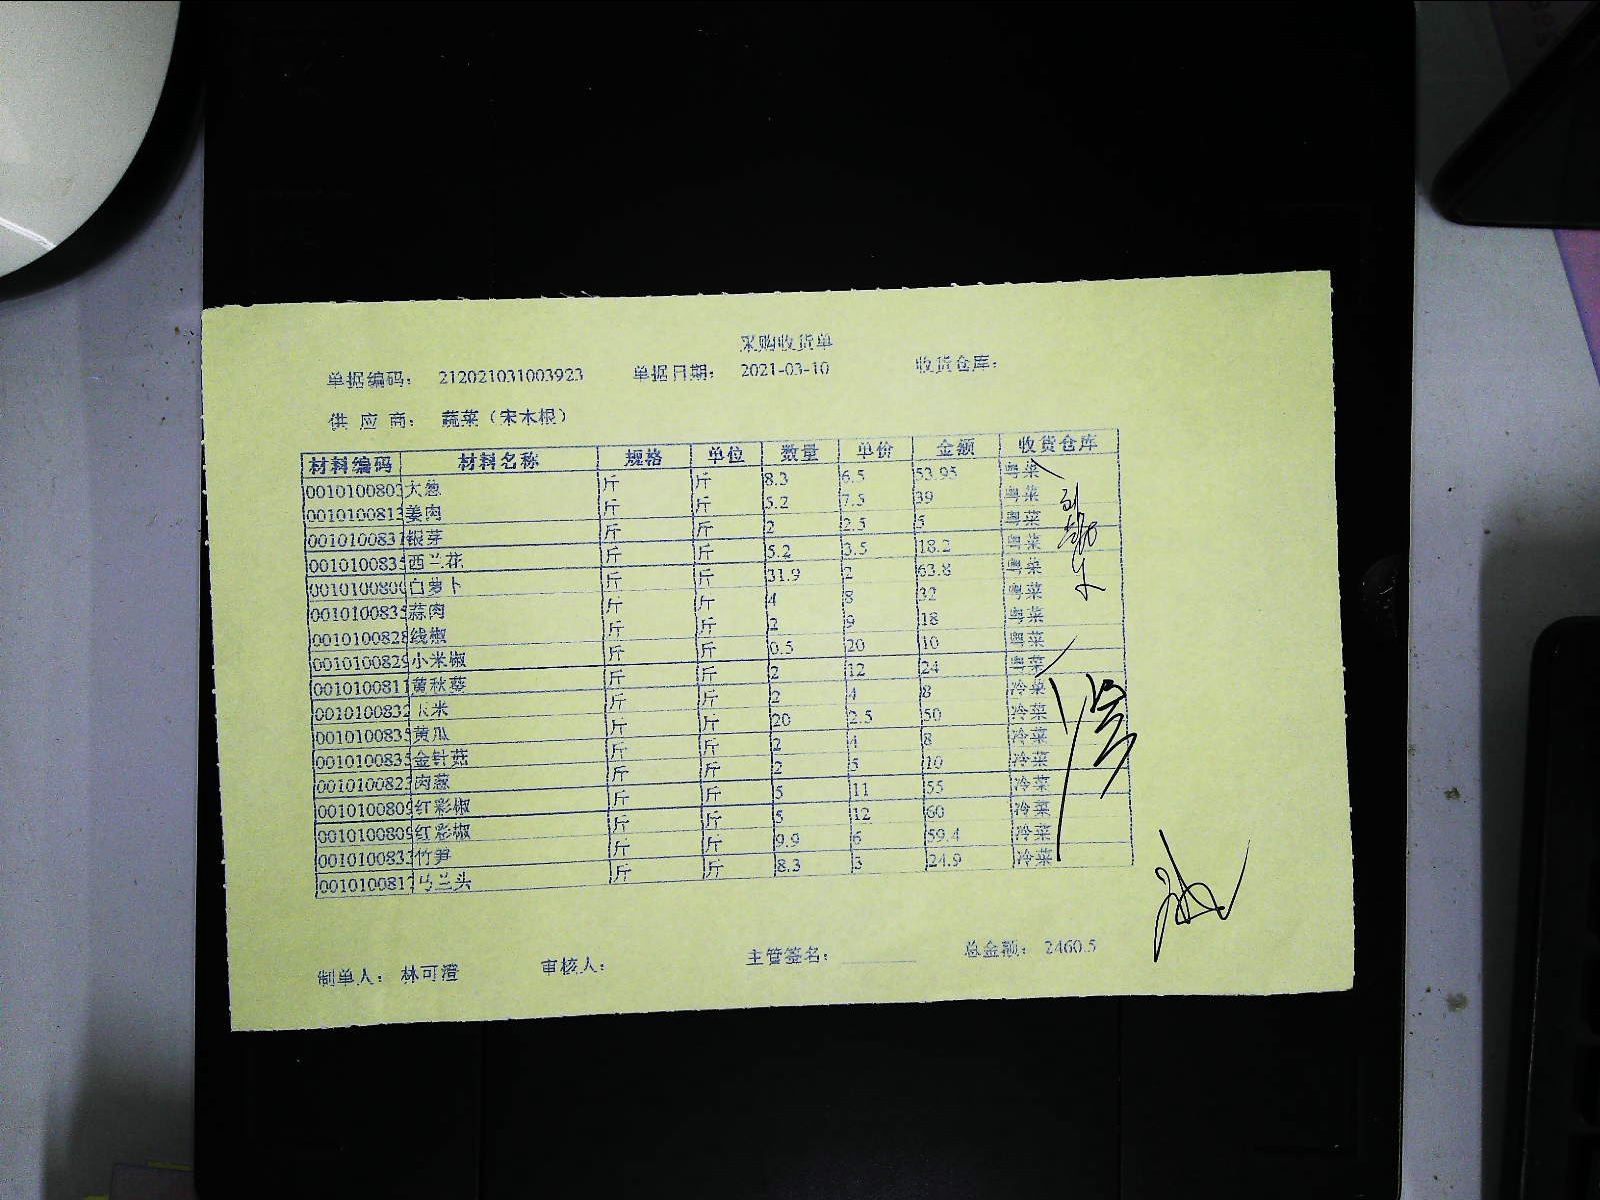 采购收货单
单据编码： 212021031003923 单据日期： 2021-03-10 收货仓库：
供 应 商： 蔬菜（宋木根）
材料编码 材料名称 规格 单位 数量 单价 金额 收货仓库
0010100803 大葱 斤 斤 8.3 6.5 53.95 粤菜
0010100813 姜肉 斤 斤 5.2 7.5 39 粤菜
0010100831 银芽 斤 斤 2 2.5 5 粤菜
0010100835 西兰花 斤 斤 5.2 3.5 18.2 粤菜
001010080 白萝卜 斤 斤 31.9 2 63.8 粤菜
0010100835 蒜肉 斤 斤 4 8 32 粤菜
0010100828 线椒 斤 斤 2 9 18 粤菜
0010100829 小米椒 斤 斤 0.5 20 10 粤菜
0010100811 黄秋葵 斤 斤 2 12 24 粤菜
0010100832 玉米 斤 斤 2 4 8 冷菜
0010100835 黄瓜 斤 斤 20 2.5 50 冷菜
0010100835 金针菇 斤 斤 2 4 8 冷菜
0010100823 肉葱 斤 斤 2 5 10 冷菜
0010100809 红彩椒 斤 斤 5 11 55 冷菜
0010100809 红彩椒 斤 斤 5 12 60 冷菜
0010100833 竹笋 斤 斤 9.9 6 59.4 冷菜
0010100817 马兰头 斤 斤 8.3 3 24.9 冷菜
制单人： 林可澄 审核人： 主管签名： 总金额： 2460.5